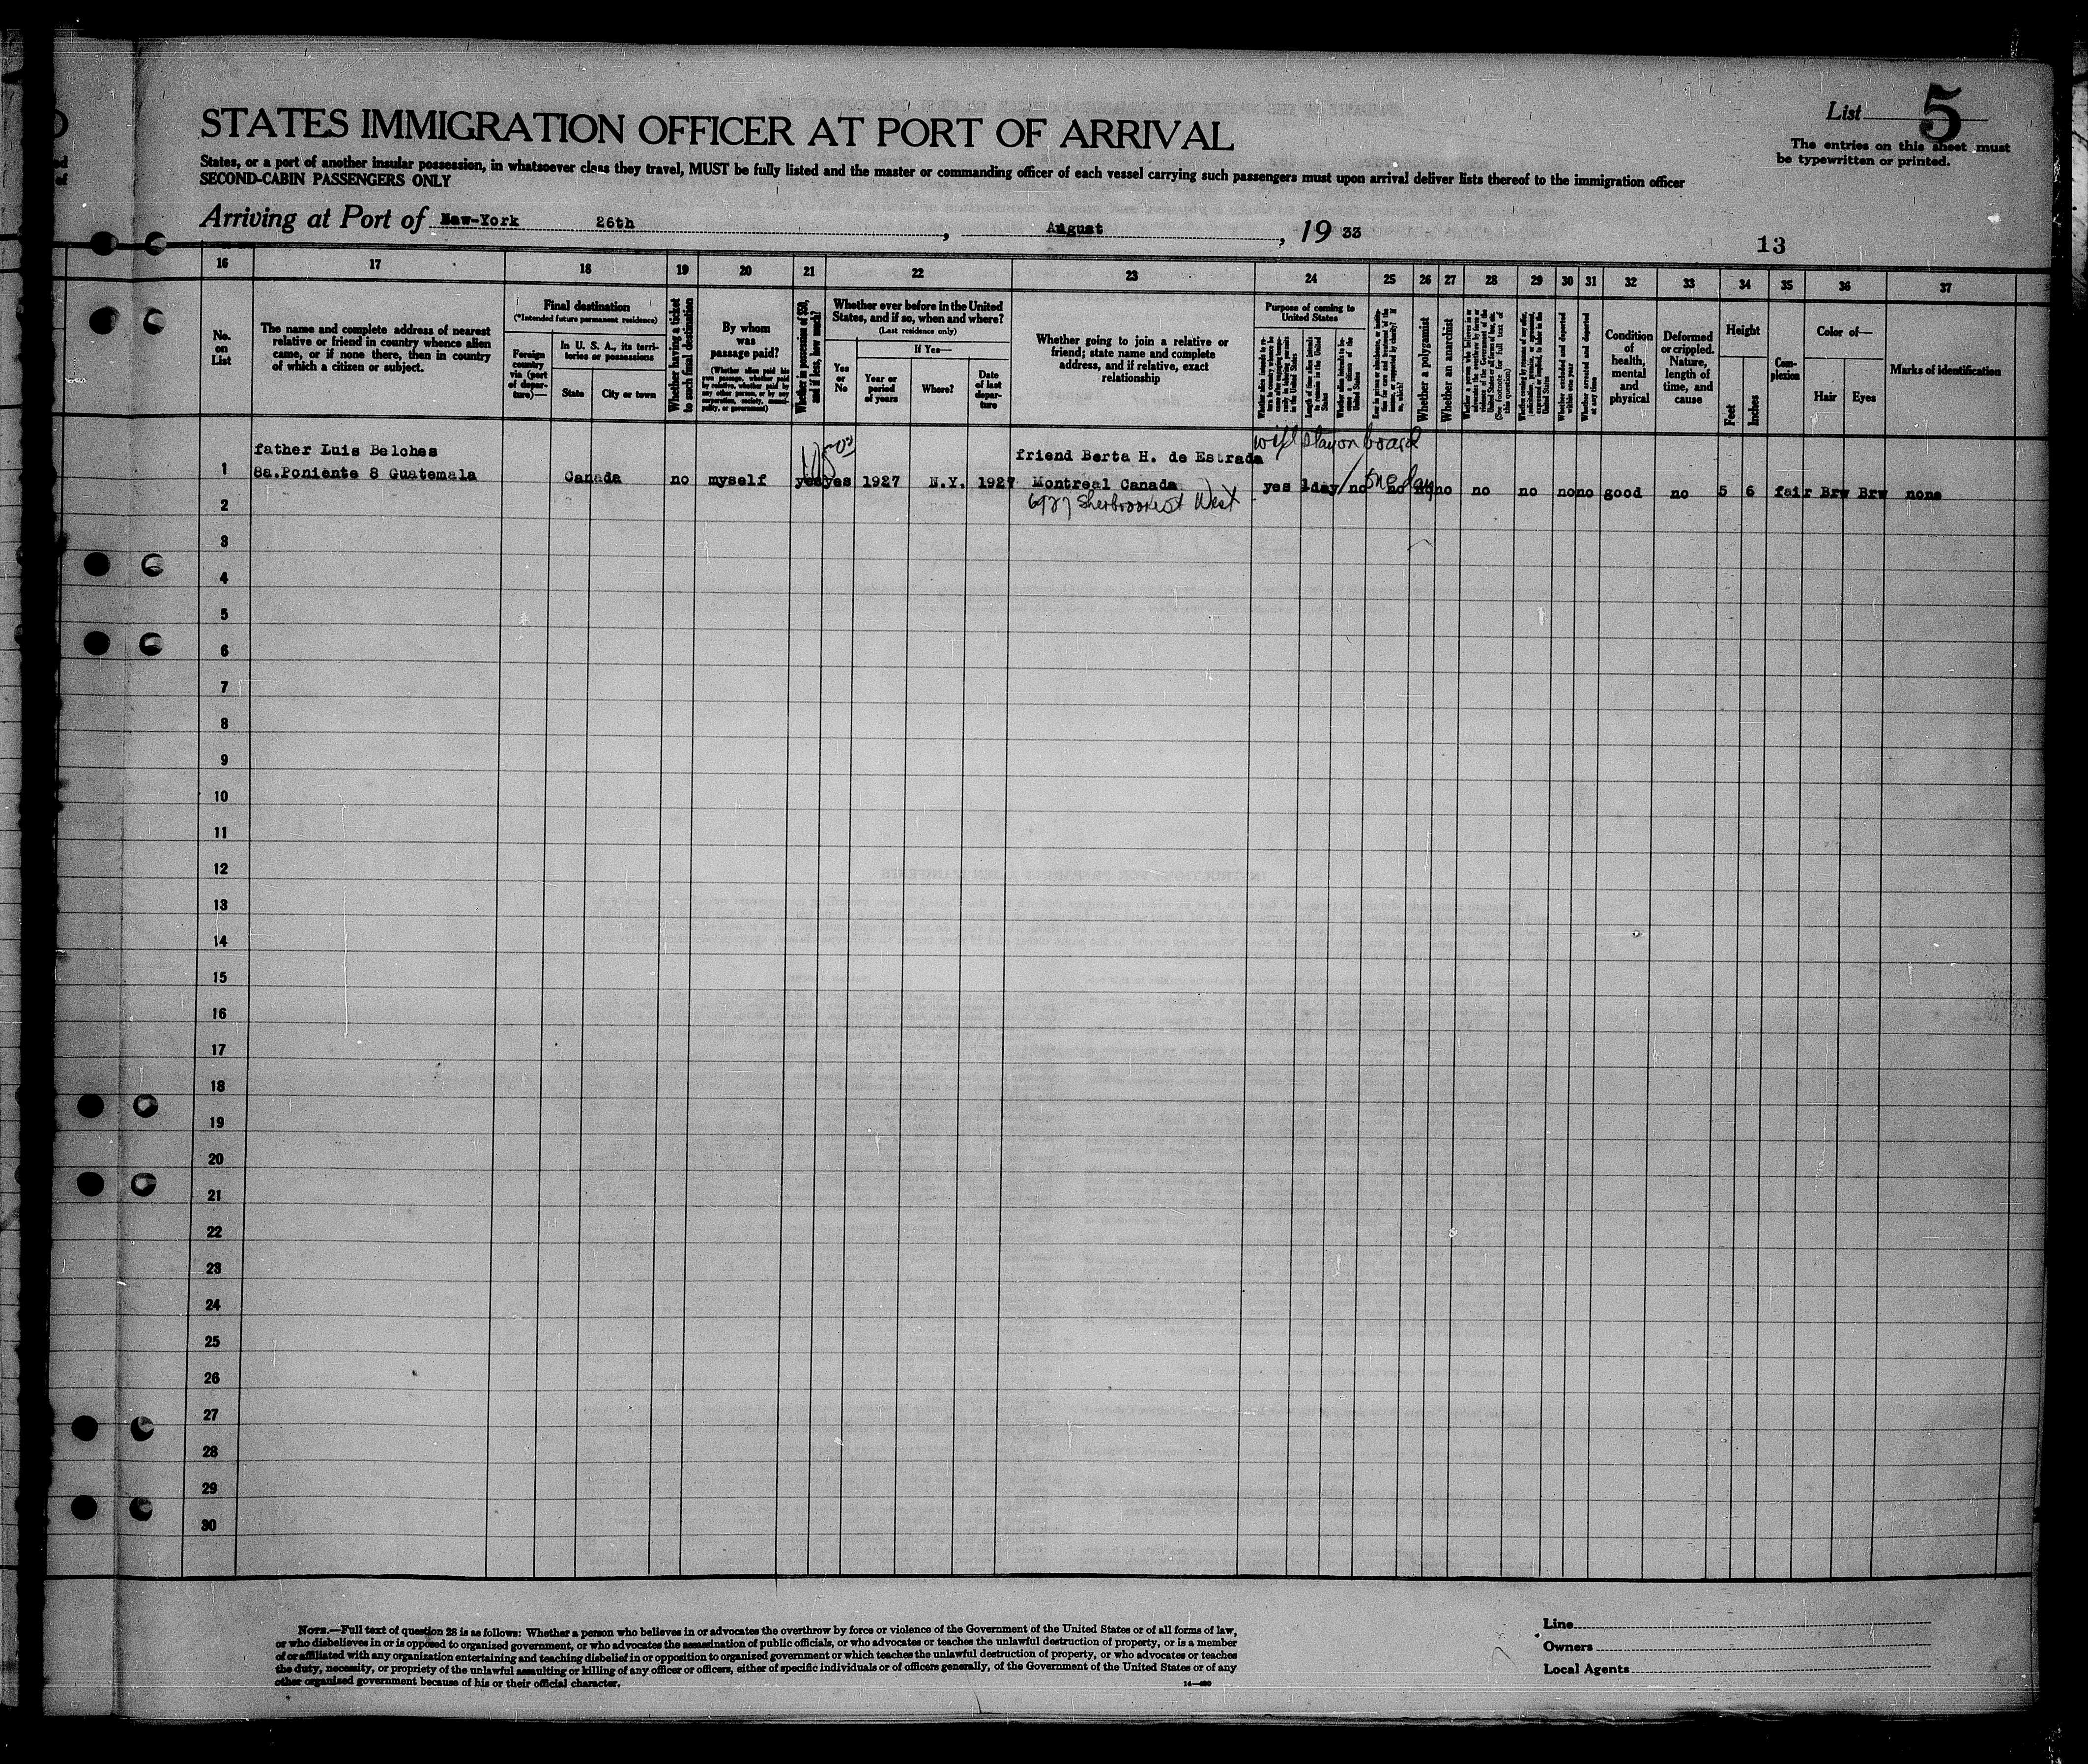 List 5
The entries on this sheet must
be typewritten or printed.
STATES IMMIGRATION OFFICER AT PORT OF ARRIVAL
States, or a port of another insular possession, in whatsoever class they travel, MUST be fully listed and the master or commanding officer of each vessel carrying such passengers must upon arrival deliver lists thereof to the immigration officer
SECOND-CABIN PASSENGERS ONLY
Arriving at Port of New-York 26th, August, 1933
13
16 17 18 19 20 21 22 23 24 25 26 27 28 29 30 31 32 33 34 35 36 37
No.
on
List
The name and complete address of nearest
relative or friend in country whence alien
came, or if none there, then in country
of which a citizen or subject.
Final destination
(*Intended future permanent residence)
Foreign
country
via (port
of depar-
ture)—
In U. S. A., its terri-
tories or possessions
State
City or town
Whether having a ticket
to such final destination
By whom
was
passage paid?
(Whether alien paid his
own passage, whether paid
by relative, whether paid by
any other person, or by any
corporation, society, munici-
pality, or government)
Whether in possession of $50,
and if less, how much?
Whether ever before in the United
States, and if so, when and where?
(Last residence only)
Yes
or
No
If Yes—
Year or
period
of years
Where?
Date
of last
depar-
ture
Whether going to join a relative or
friend; state name and complete
address, and if relative, exact
relationship
Purpose of coming to
United States
Length of time alien intends
to remain in the United
States
Whether alien intends to be-
come a citizen of the
United States
Whether a polygamist
Whether an anarchist
Whether excluded and deported
within one year
Whether arrested and deported
at any time
Condition
of
health,
mental
and
physical
Deformed
or crippled.
Nature,
length of
time, and
cause
Height
Feet
Inches
Com-
plexion
Color of—
Hair
Eyes
Marks of identification
will stay on board
one day
father Luis Belches
friend Berta H. de Estrada
1 8a.Poniente 8 Guatemala Canada no myself yes yes 1927 N.Y. 1927 Montreal Canada yes 1day no no no no no no no no good no 5 6 fair Brw Brw none
6927 Sherbrooke St West
2
3
4
5
6
7
8
9
10
11
12
13
14
15
16
17
18
19
20
21
22
23
24
25
26
27
28
29
30
NOTE.—Full text of question 28 is as follows: Whether a person who believes in or advocates the overthrow by force or violence of the Government of the United States or of all forms of law,
or who disbelieves in or is opposed to organized government, or who advocates the assassination of public officials, or who advocates or teaches the unlawful destruction of property, or is a member
of or affiliated with any organization entertaining and teaching disbelief in or opposition to organized government or which teaches the unlawful destruction of property, or who advocates or teaches
the duty, necessity, or propriety of the unlawful assaulting or killing of any officer or officers, either of specific individuals or of officers generally, of the Government of the United States or of any
other organized government because of his or their official character.
14—480
Line
Owners
Local Agents